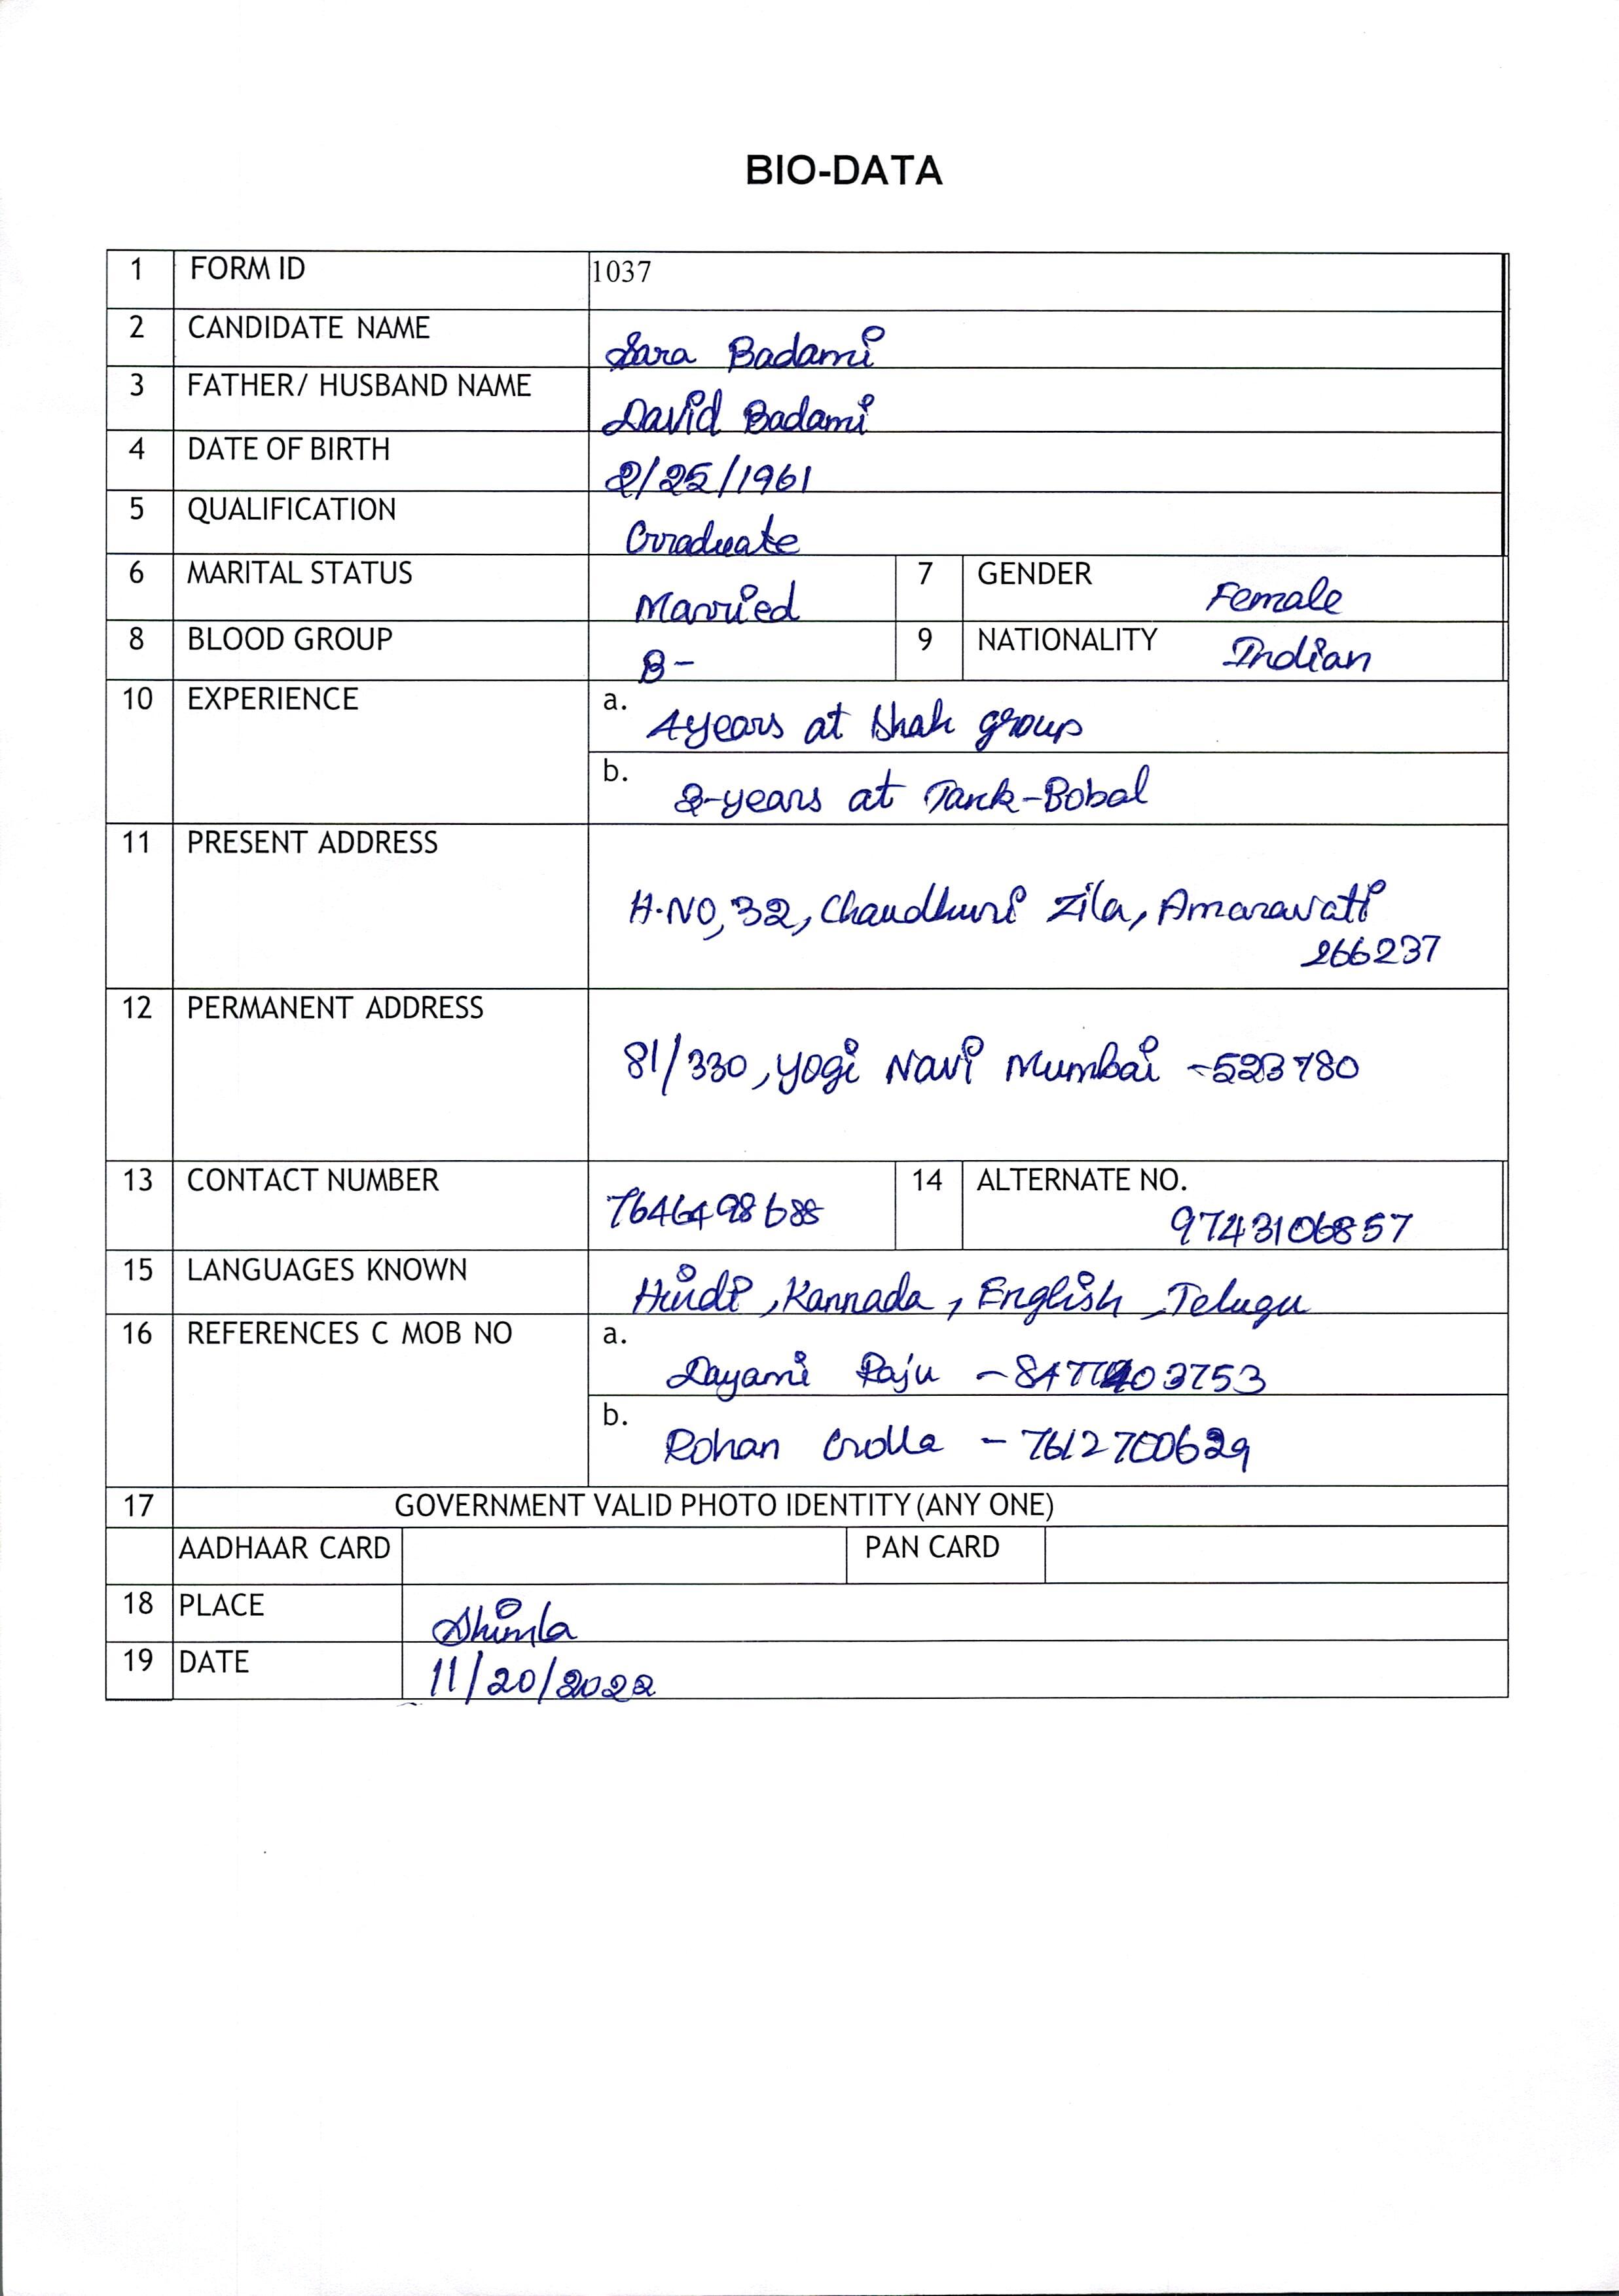 BIO-DATA
1 FORM ID 1037
2 CANDIDATE NAME Sara Badami
3 FATHER/ HUSBAND NAME David Badami
4 DATE OF BIRTH 2/25/1961
5 QUALIFICATION Graduate
6 MARITAL STATUS Married 7 GENDER Female
8 BLOOD GROUP B- 9 NATIONALITY Indian
10 EXPERIENCE a. 4years at Shah group
b. 2-years at Tank-Bobal
11 PRESENT ADDRESS
H.NO, 32, Chaudhuri Zila, Amaravati
266237
12 PERMANENT ADDRESS
81/330, Yogi Navi Mumbai -523780
13 CONTACT NUMBER 7646498688 14 ALTERNATE NO.
9743106857
15 LANGUAGES KNOWN Hindi, Kannada, English, Telugu
16 REFERENCES C MOB NO a.
Dayami Raju -
b.
Rohan Golla - 7612700629
17 GOVERNMENT VALID PHOTO IDENTITY (ANY ONE)
AADHAAR CARD PAN CARD
18 PLACE Shimla
19 DATE 11/20/2022